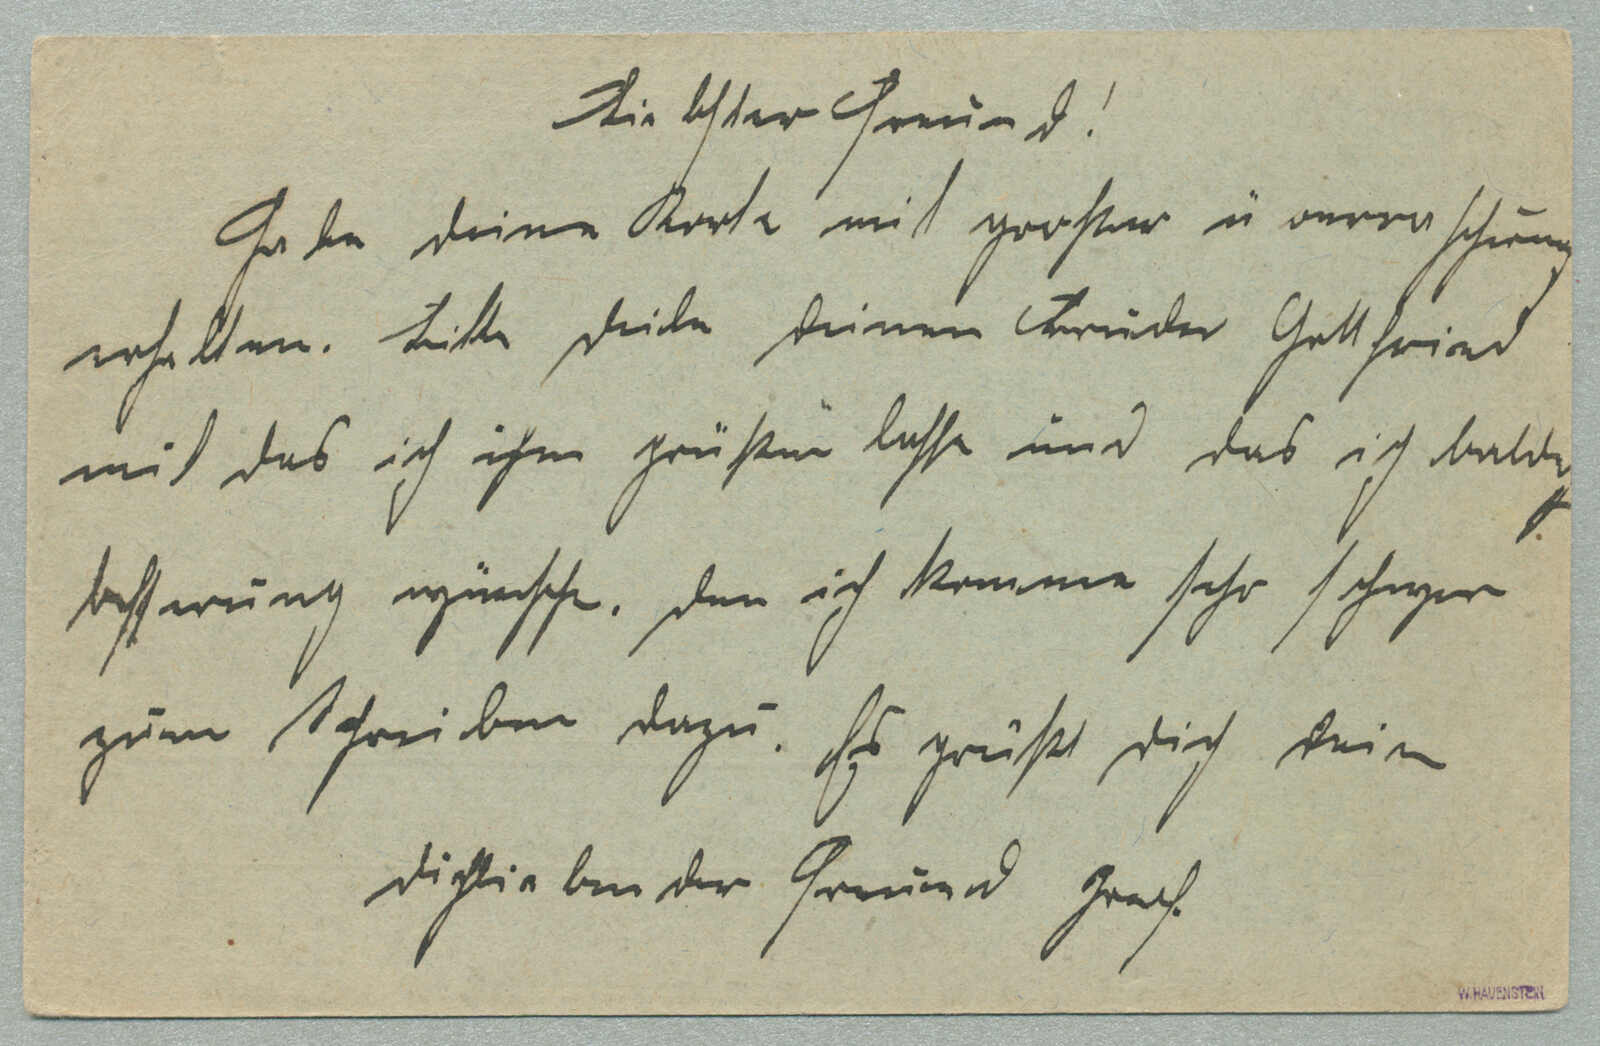 Liebster Freund!
Habe deine Karte mit grosster überraschung
erhalten. bitte deile deinen Bruder Gottfried
mit das ich ihm grüßen lasse und das ich baldig
besserung wünsche. den ich komme sehr schwer
zum Schreiben dazu. Es grüßt dich dein
dichliebender Freund
W. HAUENSTEIN